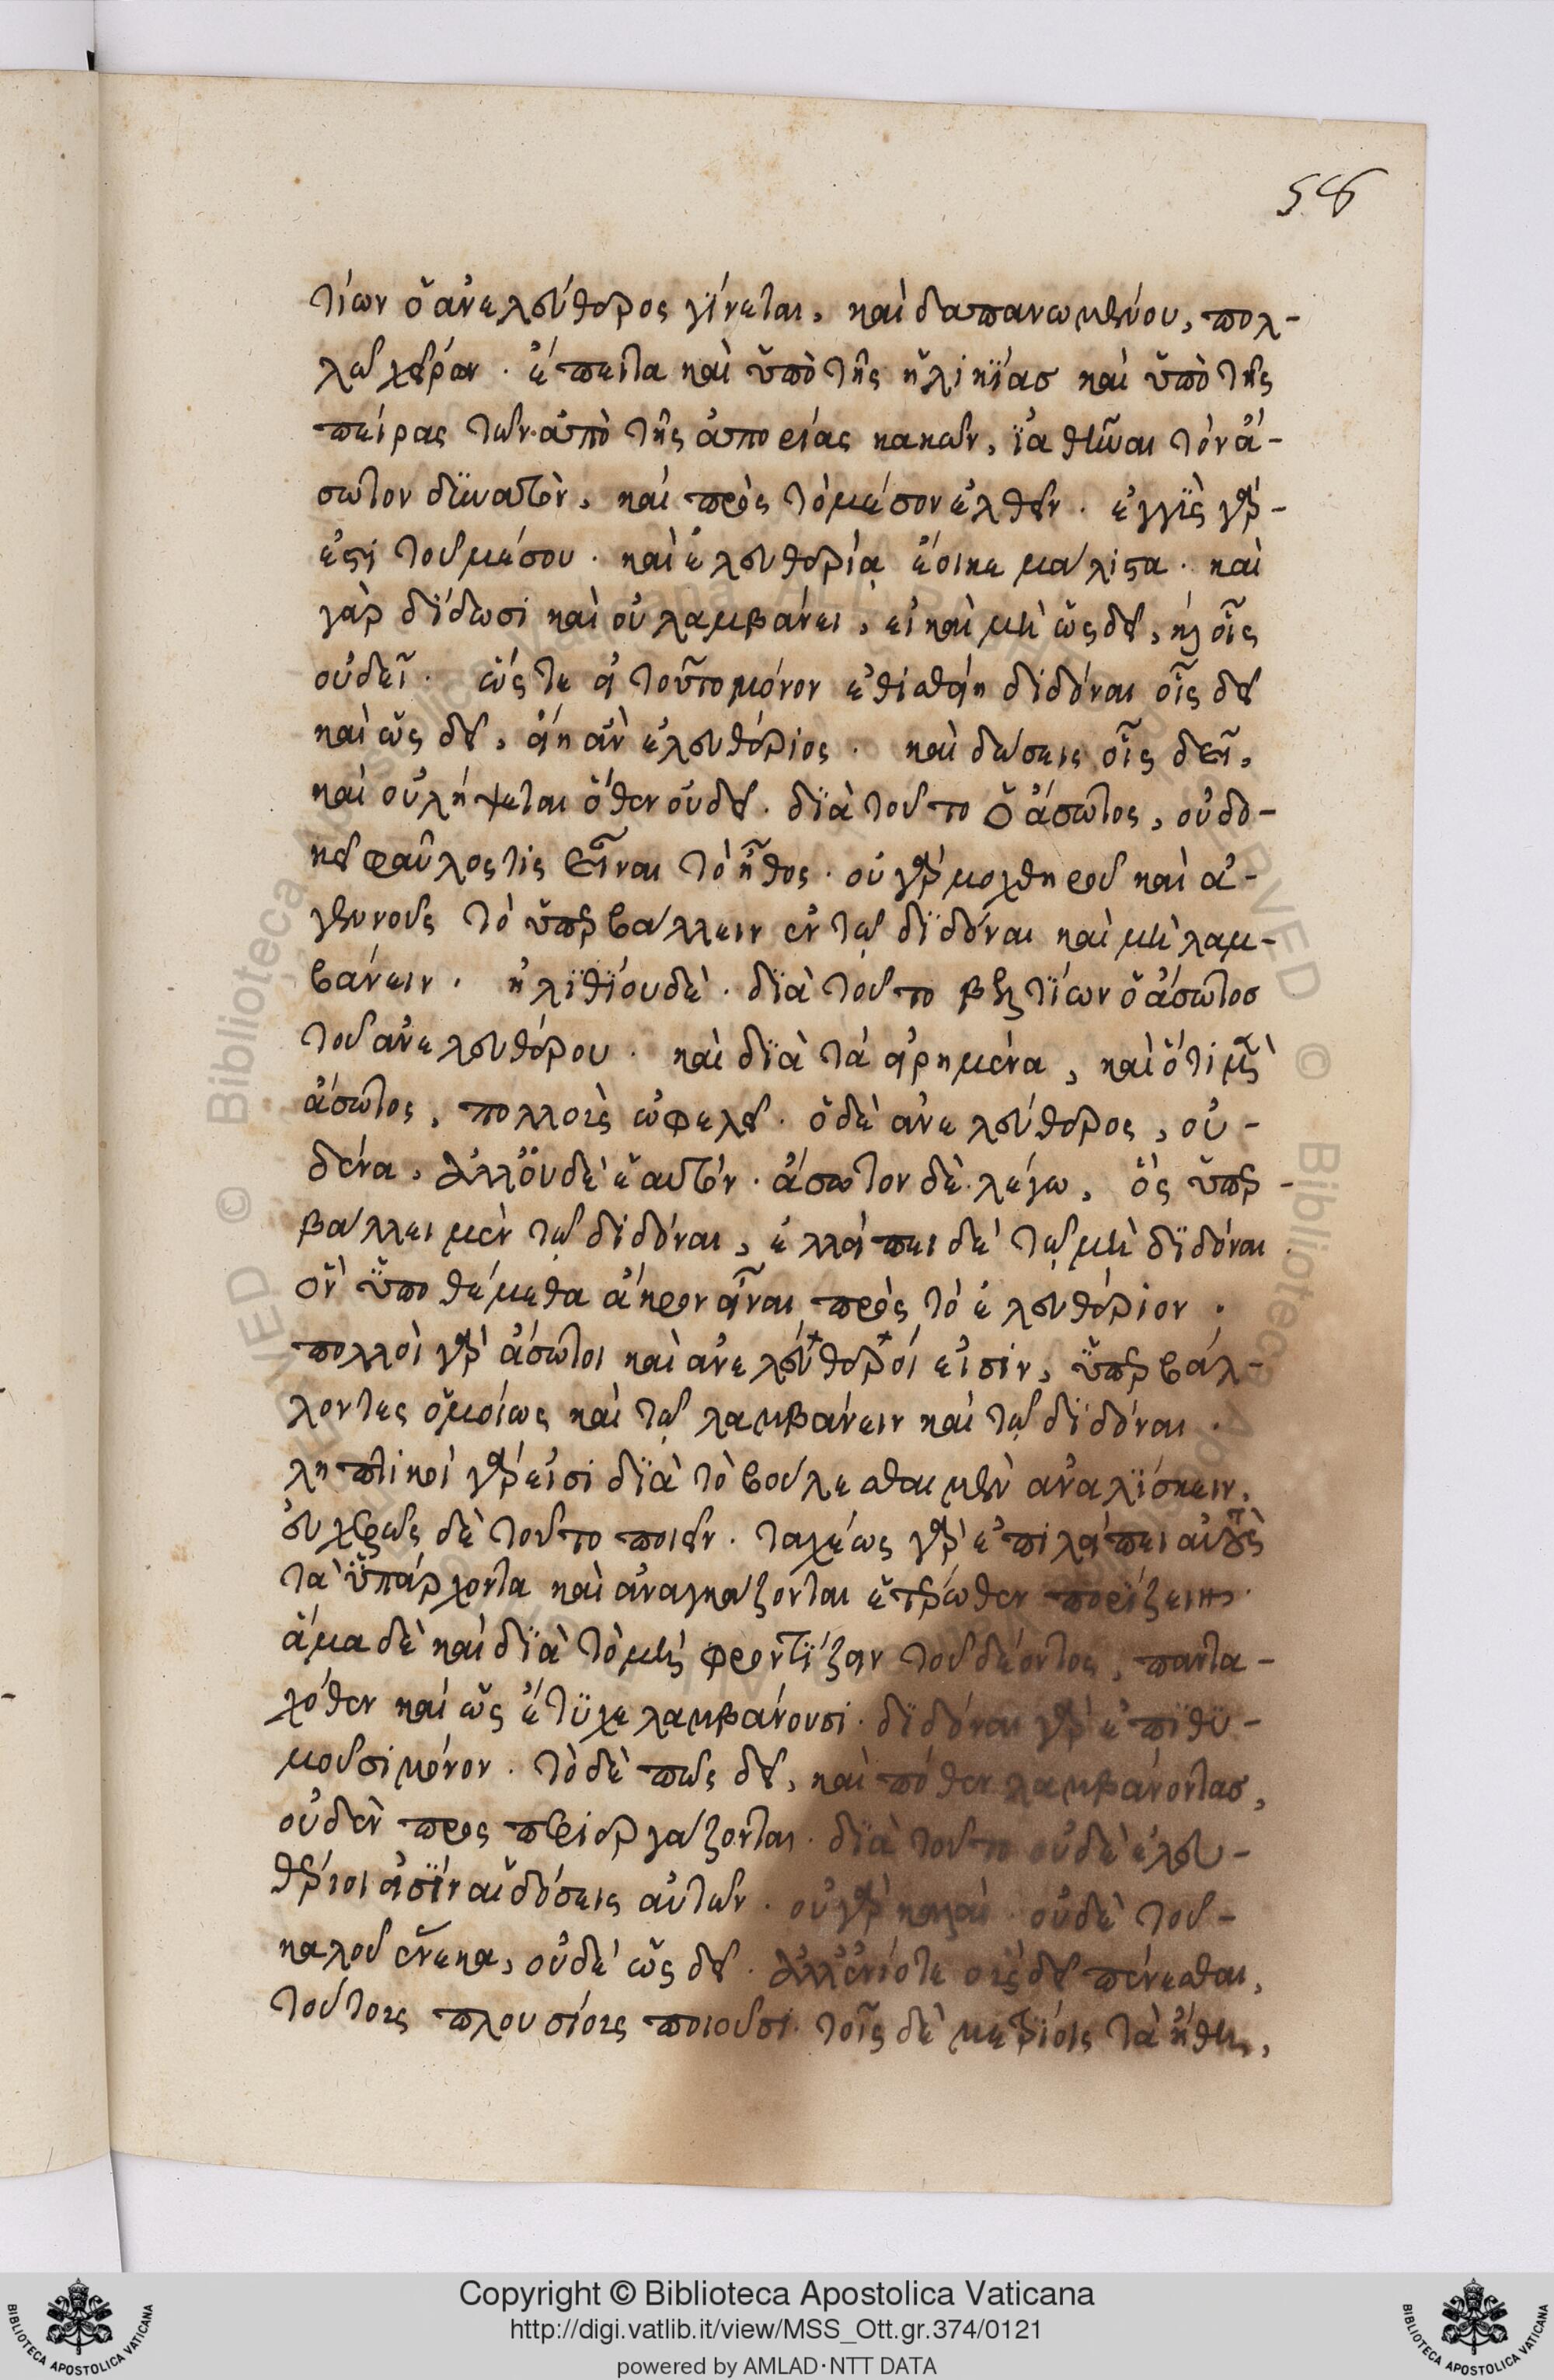 58
τίων ὁ ἀνελεύθερος γίνεται, καὶ δαπανωμένου, πολ-
λῶ χείρων. ἔπειτα καὶ ὑπὸ τῆς ἡλικίας καὶ ὑπὸ τῆς
πείρας τῶν ἀπὸ τῆς ἀπορείας κακῶν, ἰαθῆναι τὸν ἄ-
σωτον δυνατὸν, καὶ πρὸς τὸ μέσον ἐλθεῖν. ἐγγὺς γὰρ
ἐστὶ τοῦ μέσου. καὶ ἐλευθερία ἔοικε μάλιστα. καὶ
γὰρ δίδωσι καὶ οὐ λαμβάνει, εἰ καὶ μὴ ὡς δεῖ, καὶ οἷς
οὐ δεῖ. ὥς τε εἰ τοῦτο μόνον ἐθισθείη διδόναι οἷς δεῖ
καὶ ὡς δεῖ, εἴη ἂν ἐλευθέριος. καὶ δώσεις οἷς δεῖ,
καὶ οὐ λήψεται ὅθεν οὐ δεῖ. διὰ τοῦτο ὁ ἄσωτος, οὐ δο-
κεῖ φαῦλος τίς εἶναι τὸ ἦθος. οὐ γὰρ μοχθηροῦ καὶ ἀ-
γεννοῦς τὸ ὑπερβάλλειν ἐν τῷ διδόναι καὶ μὴ λαμ-
βάνειν. ἠλιθίου δὲ. διὰ τοῦτο βελτίων ὁ ἄσωτος
τοῦ ἀνελευθέρου. καὶ διὰ τὰ εἰρημένα, καὶ ὅτι μὲν
ἄσωτος, πολλοὺς ὠφελεῖ. ὁ δὲ ἀνελεύθερος, οὐ-
δένα, ἀλλ' οὐδὲ ἑαυτόν. ἄσωτον δὲ λέγω, ὃς ὑπερ-
βάλλει μὲν τῷ διδόναι, ἐλλείπει δὲ τῷ μὴ διδόναι.
ὃν ὑποθέμεθα ἄκρον εἶναι πρὸς τὸ ἐλευθέριον.
πολλοὶ γὰρ ἄσωτοι καὶ ἀνελεύθεροί εἰσιν, ὑπερβάλ-
λοντες ὁμοίως καὶ τῷ λαμβάνειν καὶ τῷ διδόναι.
ληπτικοί γὰρ εἰσι διὰ τὸ βούλεσθαι μὲν ἀναλίσκειν,
εὐχερῶς δὲ τοῦτο ποιεῖν. ταχέως γὰρ ἐπιλείπει αὐτοὺς
τὰ ὑπάρχοντα καὶ ἀναγκάζονται ἑτέρωθεν πορίζειν.
ἅμα δὲ καὶ διὰ τὸ μὴ φροντίζειν τοῦ δέοντος, παντα-
χόθεν καὶ ὡς ἔτυχε λαμβάνουσι. διδόναι γὰρ ἐπιθυ-
μοῦσι μόνον. τὸ δὲ πῶς δεῖ, καὶ πόθεν λαμβάνοντας,
οὐδὲν προς περιεργάζονται. διὰ τοῦτο οὐδὲ ἐλευ-
θέριοι εἰσίν αἱ δόσεις αὐτῶν. οὐ γὰρ καλαὶ. οὐδὲ τοῦ
καλοῦ ἕνεκα, οὐδὲ ὡς δεῖ. ἀλλ' ἐνίοτε οὓς δεῖ πένεσθαι,
τούτους πλουσίους ποιοῦσι. τοῖς δὲ μετρίοις τὰ ἤθη,
Copyright © Biblioteca Apostolica Vaticana
http://digi.vatlib.it/view/MSS_Ott.gr.374/0121
powered by AMLAD·NTT DATA
BIBLIOTECA APOSTOLICA VATICANA
BIBLIOTECA APOSTOLICA VATICANA